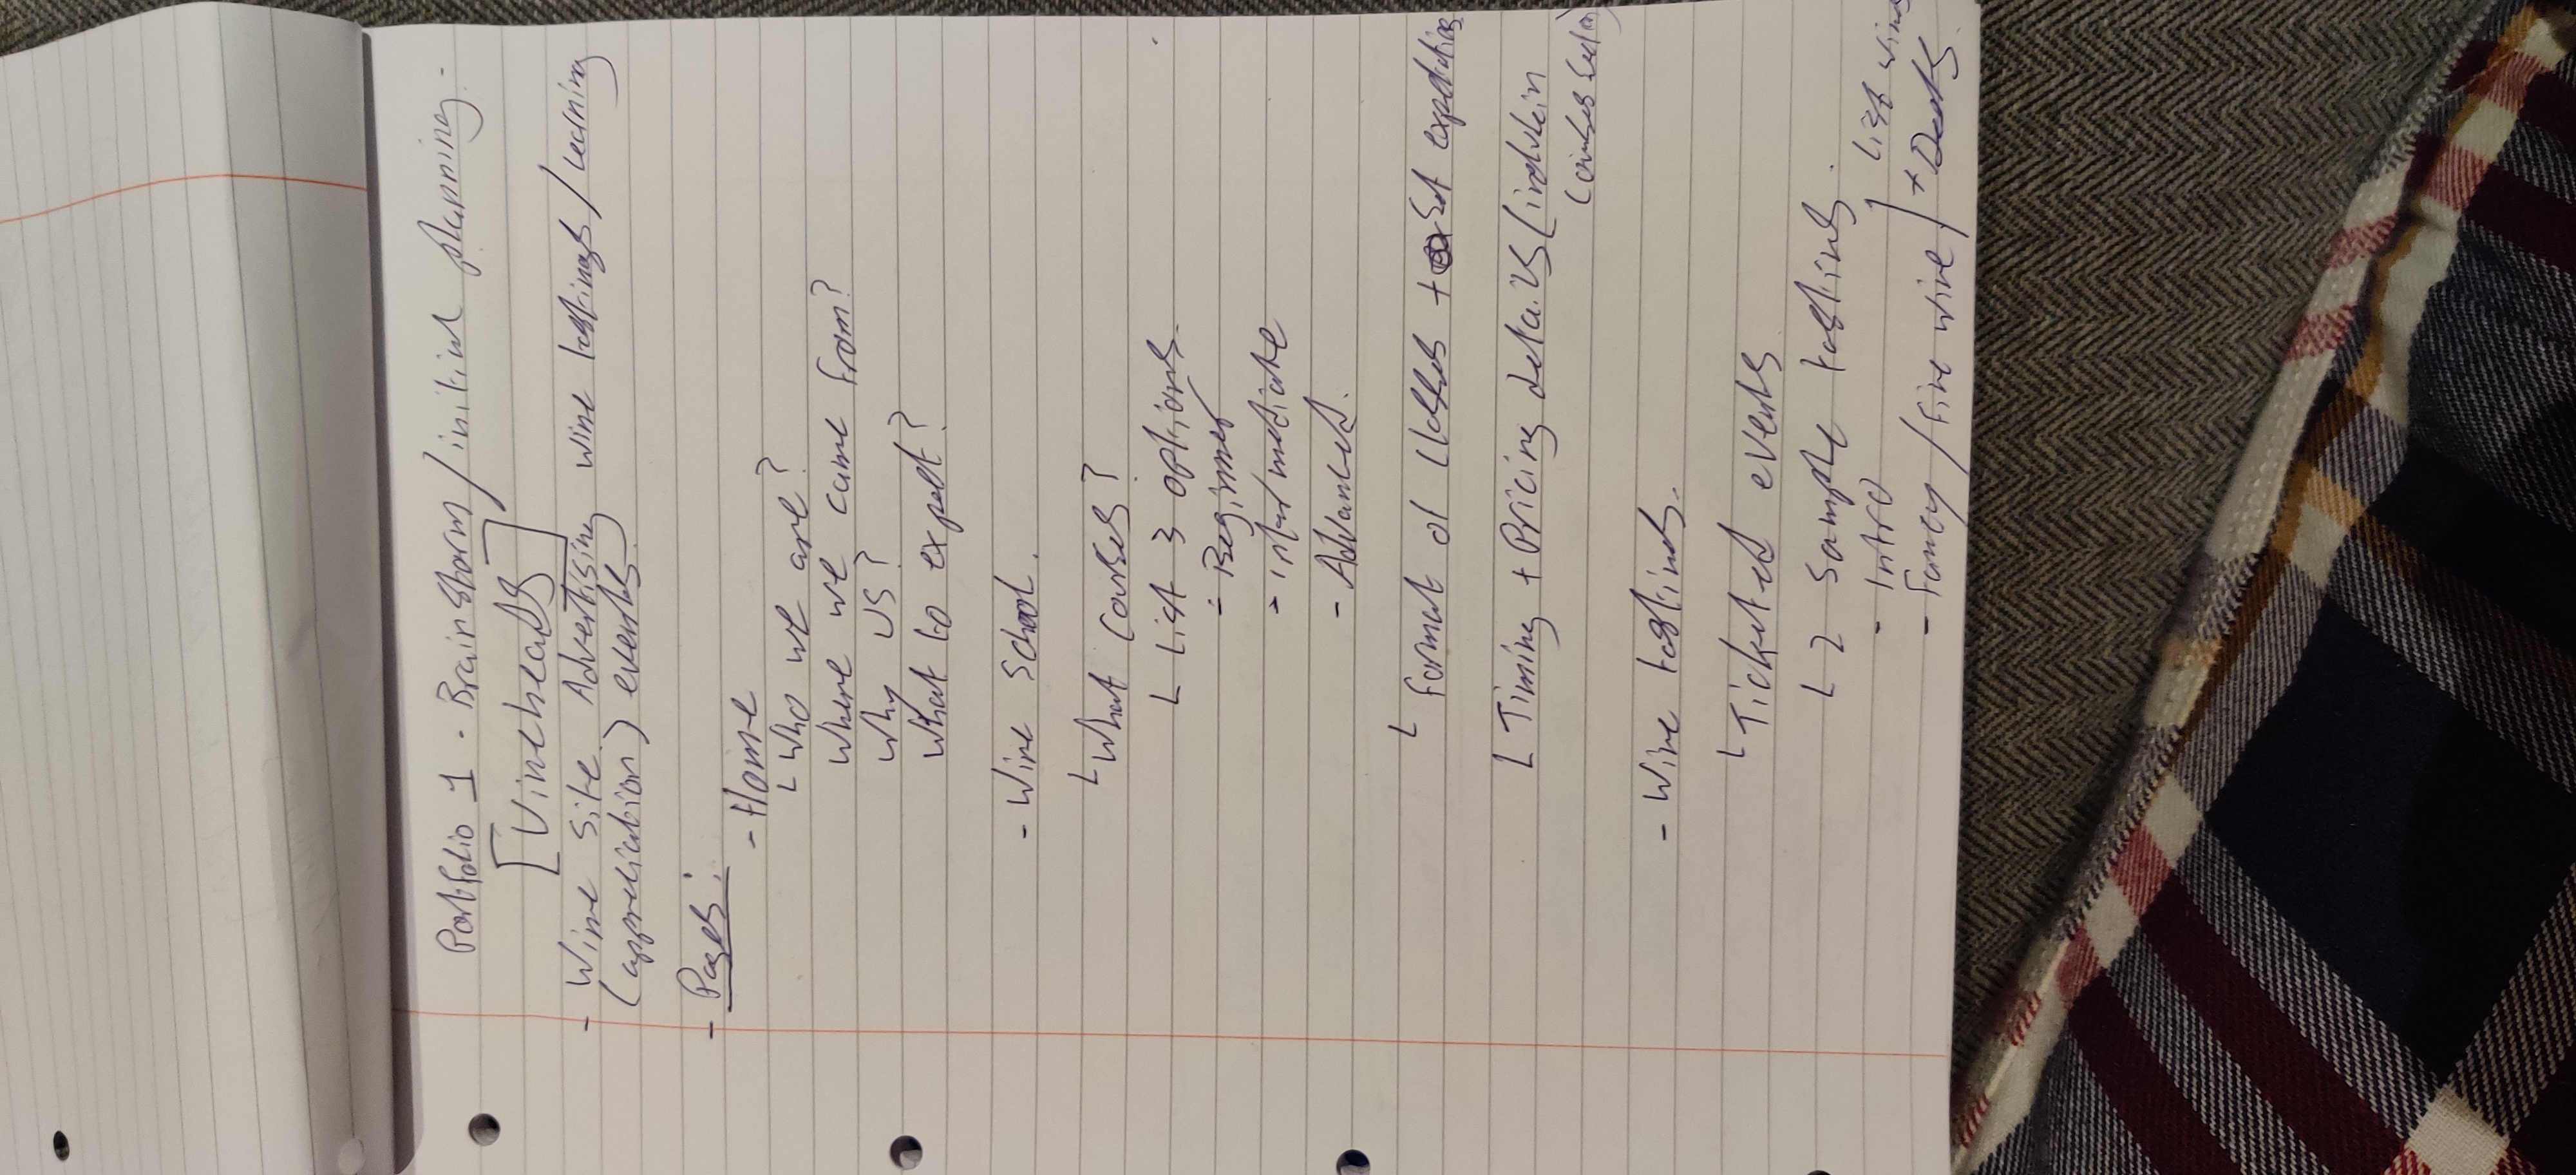 Portfolio 1 - Brainstorm / initial planning -
[Vineheads]
- Wine Site. Advertising wine tastings / learning
(appreciation) events.
- Pages:
- Home
└ Who we are?
Where we came from?
Why US?
What to expect?
- Wine School.
└ What Courses?
└ List 3 options.
- Beginner
- intermediate
- Advanced.
└ format of classes + Set expectations
└ Timing + Pricing details (include in
Courses section)
- Wine tastings.
└ Ticketed events
└ 2 Sample tastings.
- Intro
- Fancy / Fine wine
List wines
+